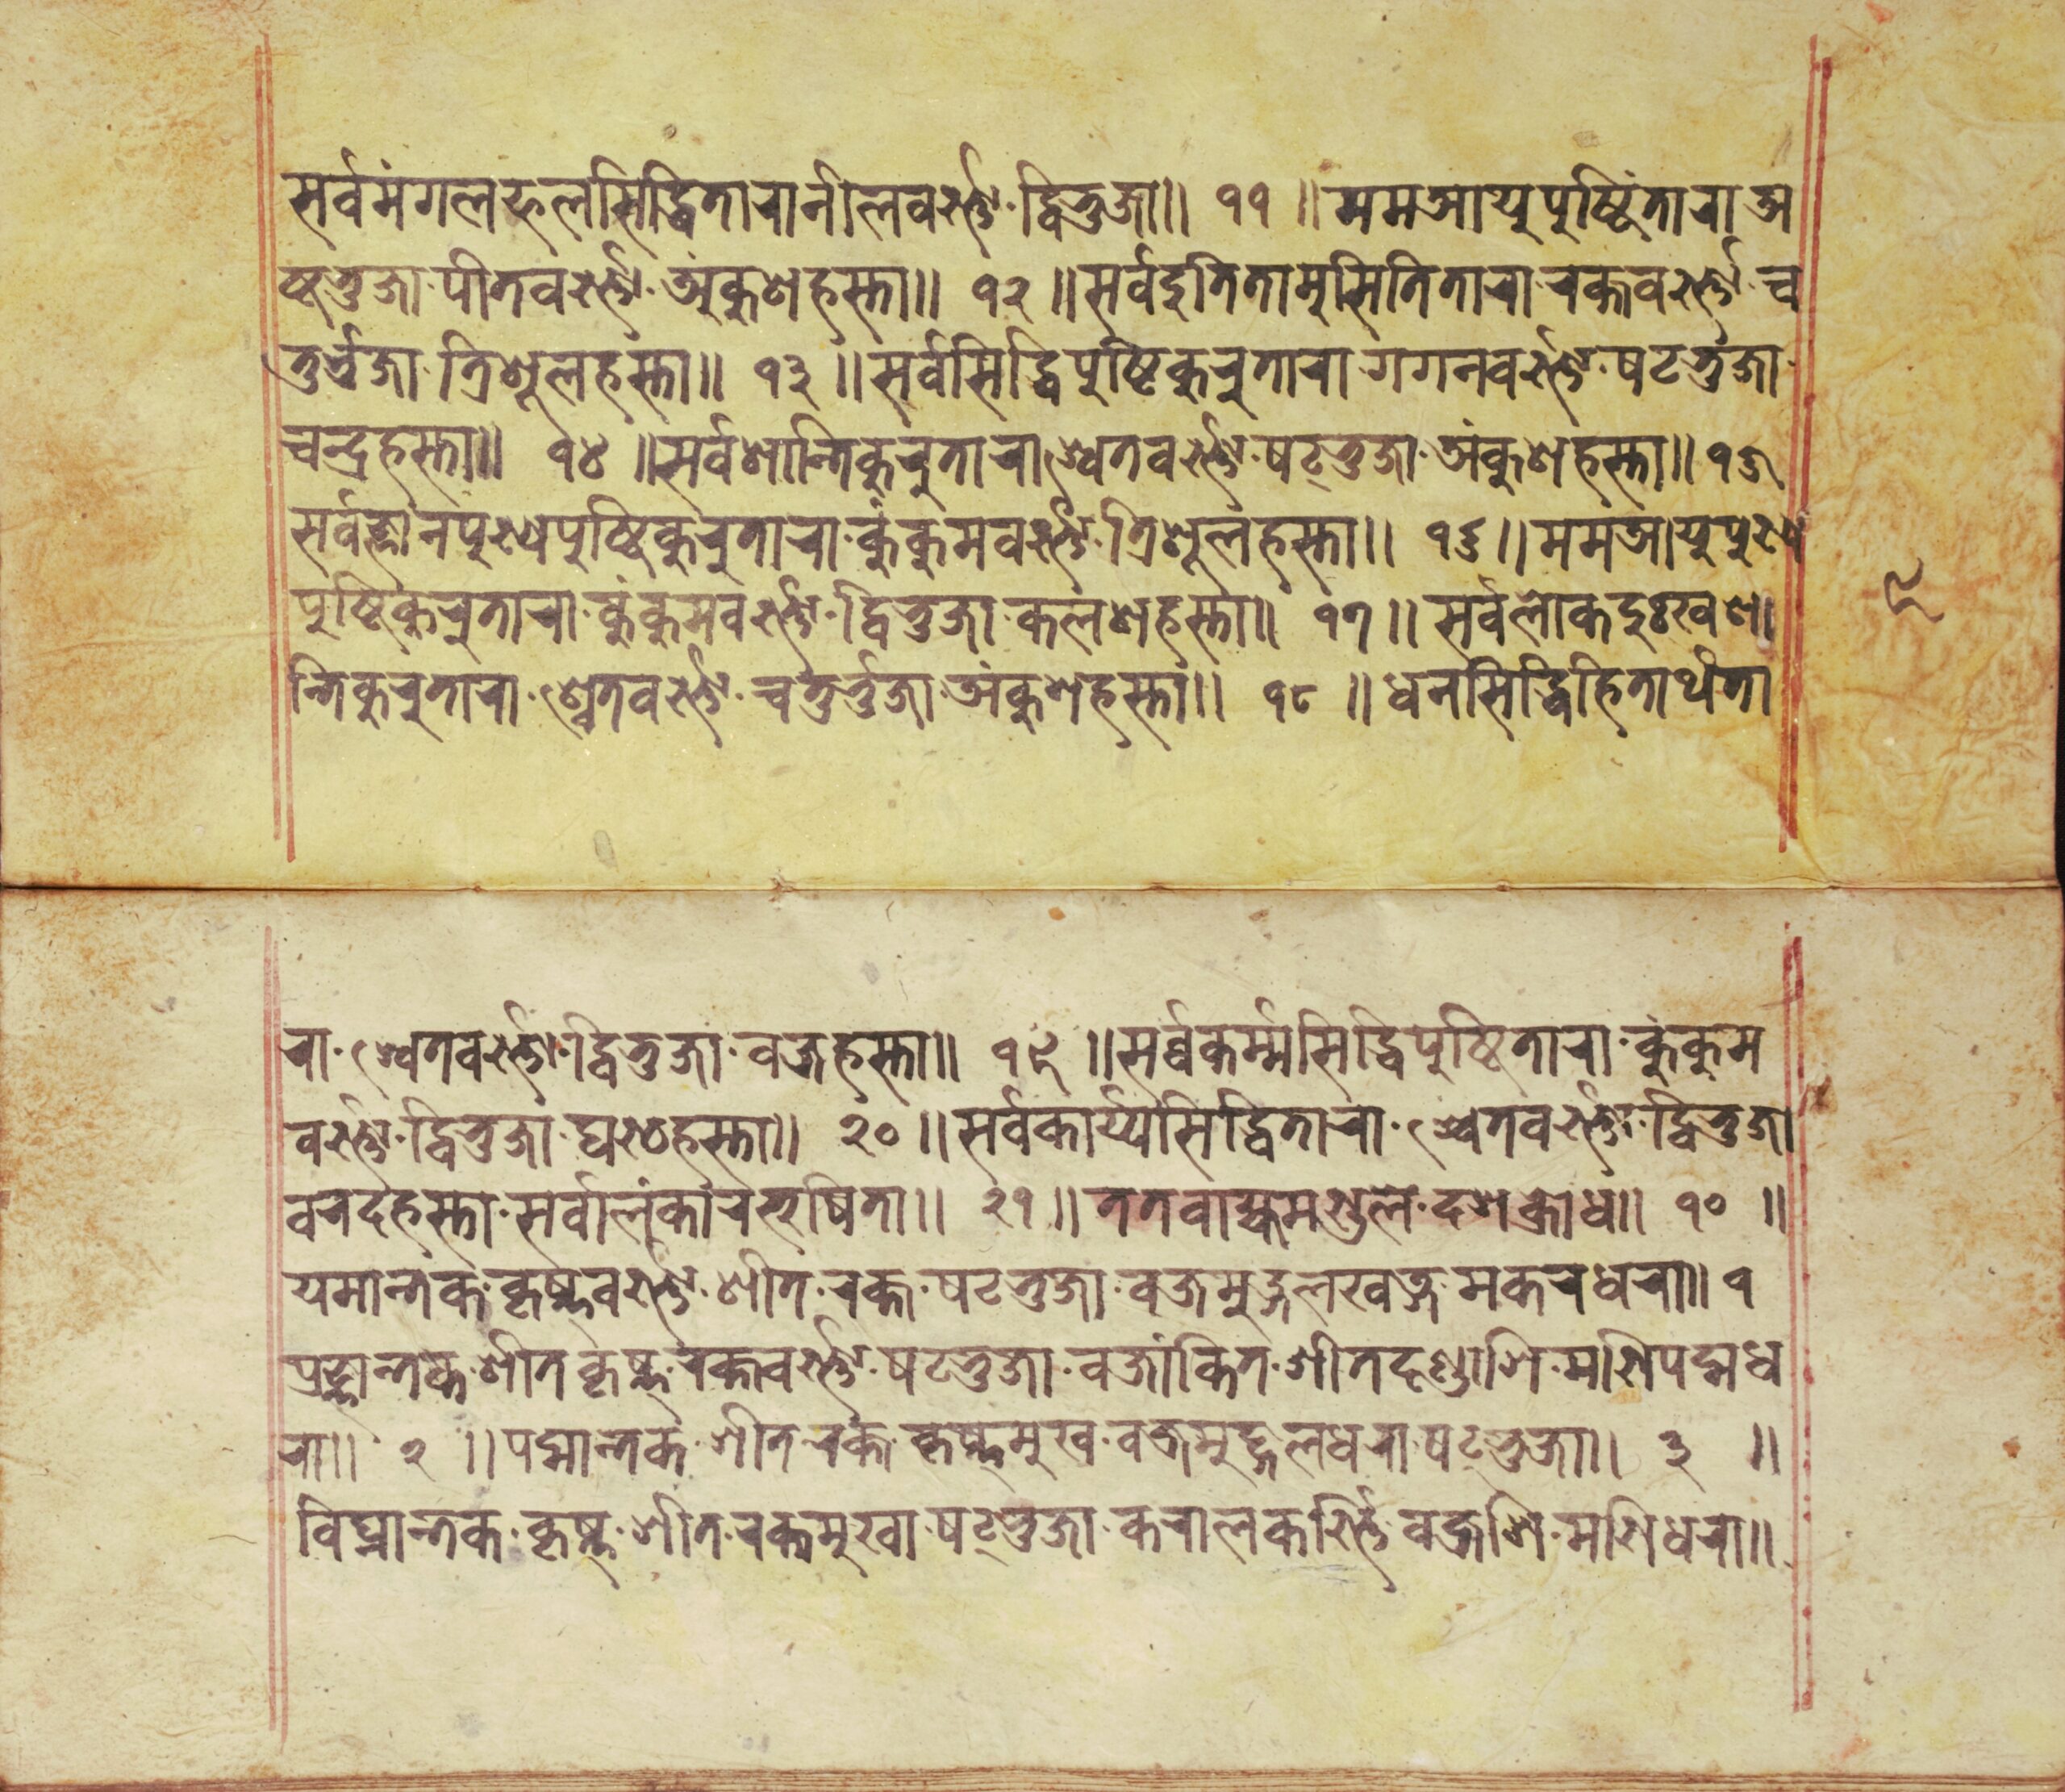 सर्वमंगलफलसिद्धितारानीलवर्ण्ण·द्विभुजा॥ ११ ॥ममआयुपुष्टिंतारा अ
ष्टभुजा·पीतवर्ण्ण·अंकुशहस्ता॥ १२ ॥सर्वदुतितामुसितितारा·रक्तवर्ण्ण·च
तुर्भुजा·त्रिशूलहस्ता॥ १३ ॥सर्वसिद्धिपुष्टिकुरुतारा गगनवर्ण्ण·षटर्भुजा·
चन्द्रहस्ता॥ १४ ॥सर्वशान्तिकुरुताराश्वेतवर्ण्ण·षट्भुजा·अंकुशहस्ता॥१५
सर्वज्ञानपुण्यपुष्टिकुरुतारा·कुंकुमवर्ण्ण·त्रिशूलहस्ता॥ १६॥ममआयुपुण्य
पुष्टिकुरुतारा·कुंकुमवर्ण्ण·द्विभुजा·कलशहस्ता॥ १७॥ सर्वलोकदुःखशा
न्तिकुरुतारा·श्वेतवर्ण्ण·चतुर्भुजा·अंकुशहस्ता॥ १८ ॥धनसिद्धिहितार्थता
९
रा·श्वेतवर्ण्ण·द्विभुजा·वज्रहस्ता॥ १९ ॥सर्व्वकर्म्मसिद्धिपुष्टितारा·कुंकुम
वर्ण्ण·द्विभुजा·घण्ठहस्ता॥ २०॥सर्वकार्य्यसिद्धितारा·श्वेतवर्ण्ण·द्विभुजा
वरदहस्ता·सर्वालंकारभुषिता॥ २१॥ततवाह्यमण्डले·दशक्रोध॥ १० ॥
यमान्तक·कृष्णवर्ण्ण·शीत·रक्त·षटभुजा·वज्रमुद्गलखड्ग·मकरधरा॥१
प्रज्ञान्तक·शीतकृष्ण·रक्तवर्ण्ण·षटभुजा·वज्रांकित·शीतदण्डाशि·मणिपद्मध
रा॥ २ ॥पद्मान्तक·शीत·रक्त·कृष्णमुख·वज्रमुद्गलधरा·षट्भुजा॥ ३ ॥
विघ्नान्तक·कृष्ण·शीत·रक्तमुखा·षट्भुजा·करालकर्ण्णि·वज्रशि·मणिधरा॥